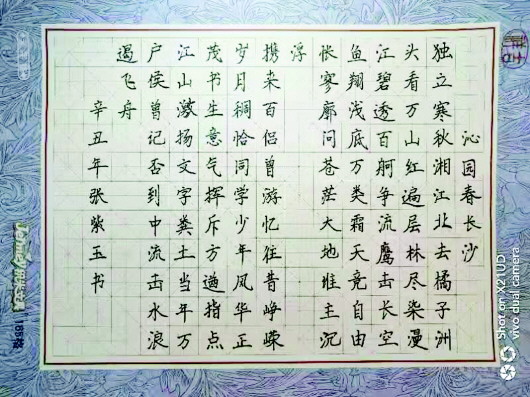 沁园春长沙
独立寒秋湘江北去橘子洲
头看万山红遍层林尽染漫
江碧透百舸争流鹰击长空
鱼翔浅底万类霜天竞自由
怅寥廓问苍茫大地谁主沉
浮
携来百侣曾游忆往昔峥嵘
岁月稠恰同学少年风华正
茂书生意气挥斥方遒指点
江山激扬文字粪土当年万
户侯曾记否到中流击水浪
遏飞舟
辛丑年张紫玉书
185格
Shot on X21UD
vivo dual camera